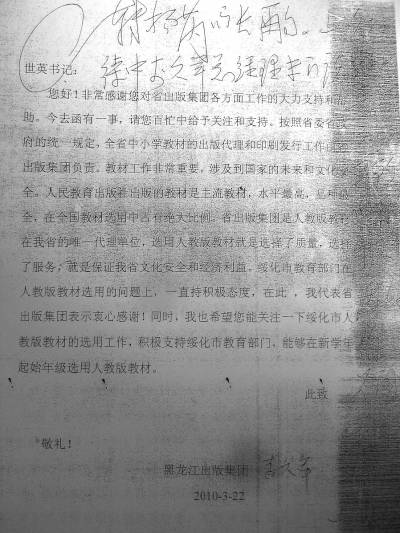 世英书记：
您好！非常感谢您对省出版集团各方面工作的大力支持和帮
助。今去函有一事，请您百忙中给予关注和支持。按照省委省政
府的统一规定，全省中小学教材的出版代理和印刷发行工作由
出版集团负责。教材工作非常重要，涉及到国家的未来和文化安
全。人民教育出版社出版的教材是主流教材，水平最高，品种最
全，在全国教材选用中占有绝大比例。省出版集团是人教版教材
在我省的唯一代理单位，选用人教版教材就是选择了质量，选择
了服务，就是保证我省文化安全和经济利益，绥化市教育部门在
人教版教材选用的问题上，一直持积极态度，在此，我代表省
出版集团表示衷心感谢！同时，我也希望您能关注一下绥化市人
教版教材的选用工作，积极支持绥化市教育部门，能够在新学年
起始年级选用人教版教材。
此致
敬礼！
黑龙江出版集团
2010-3-22